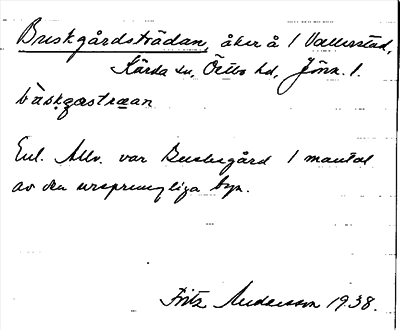 Buskgårdsträdan, åker å 1 Vallerstad,
Kärda sn, Östbo hd, Jönk. l.
Enl. Allv. var Buskegård 1 mantal
av den ursprungliga byn.
Fritz Andersson 1938.